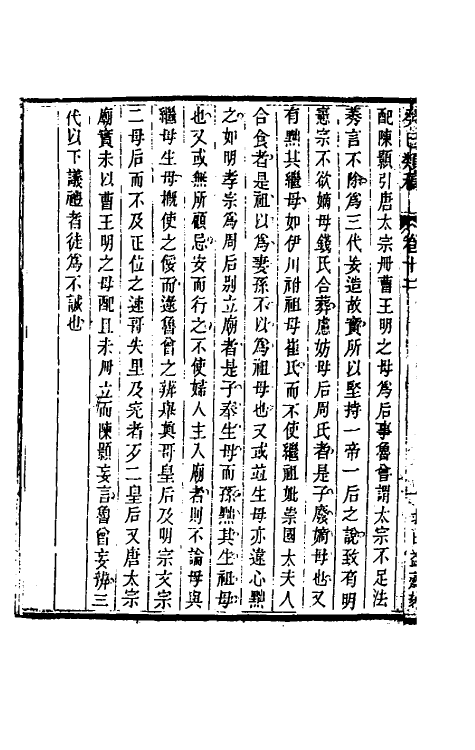 癸巳類稾 卷十二
配陳顥引唐太宗冊曹王明之母為后事魯曾謂太宗不足法
秀言不除為三代妄造故實所以堅持一帝一后之說致有明
憲宗不欲嫡母錢氏合葬慮妨母后周氏者是子廢嫡母也又
有黜其繼母如伊川祔祖母崔氏而不使繼祖妣崇國太夫人
合食者是祖以為妻孫不以為祖母也又或並生母亦違心黜
之如明孝宗為周后别立廟者是子奉生母而孫黜其生祖母
也又或無所顧忌安而行之不使婦人主入廟者則不論母與
繼母生母概使之餒而遂魯曾之辨舉真哥皇后及明宗文宗
二母后而不及正位之速哥失里及完者歹二皇后又唐太宗
廟實未以曹王明之母配且未冊立而陳顥妄言魯曾妄辨三
代以下議禮者徒為不誠也